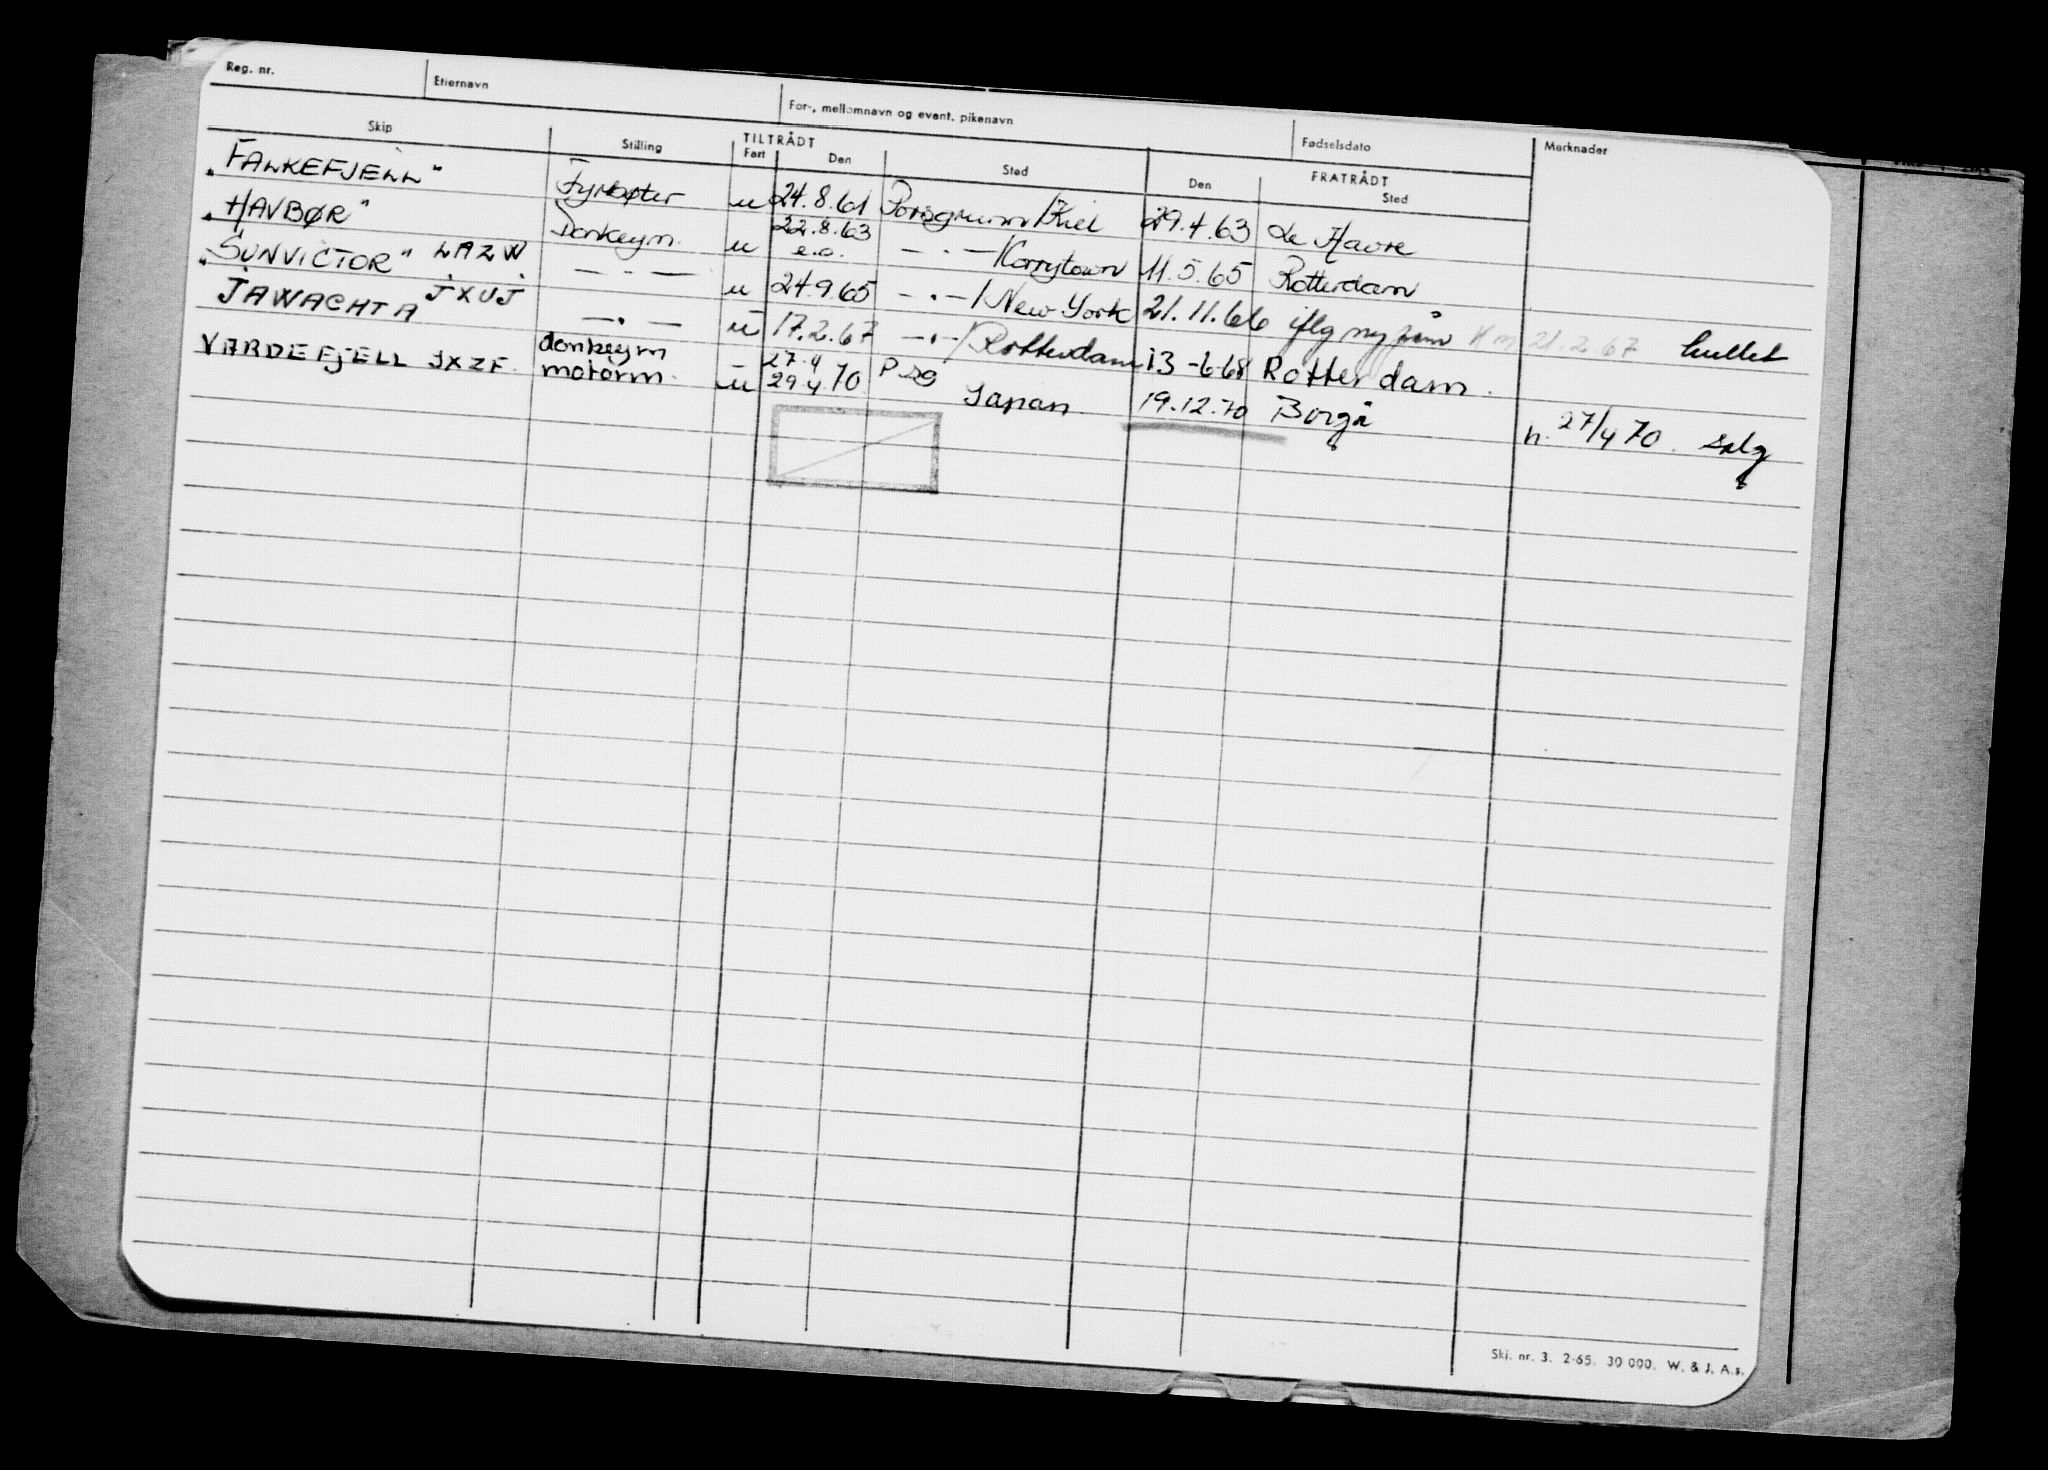 Reg. nr. Etternavn For-, mellomnavn og event. pikenavn Fødselsdato Merknader
TILTRÅDT FRATRÅDT
Skip Stilling Fart Den Sted Den Sted
"FALKEFJELL" Fyrbøter u 24.8.61 Porsgrunn/Kiel 29.4.63 Le Havre
"HAVBØR" Donkeym. u 22.8.63 e.o. — . — /Kerrytown 11.5.65 Rotterdam
"SUNVICTOR" LAZW — . — u 24.9.65 — . — / New York 21.11.66 iflg ny 21.2.67
JAWACHTA JXUJ — . — u 17.2.67 — . — /Rotterdam 13-6-68 Rotterdam.
VARDEFJELL JXZF. donkeym motorm. u 27.4 29.4.70. Japan 19.12.70 Borgå h. 27/4 70. salg
Skj. nr. 3. 2-65. 30 000. W. & J. A.s.